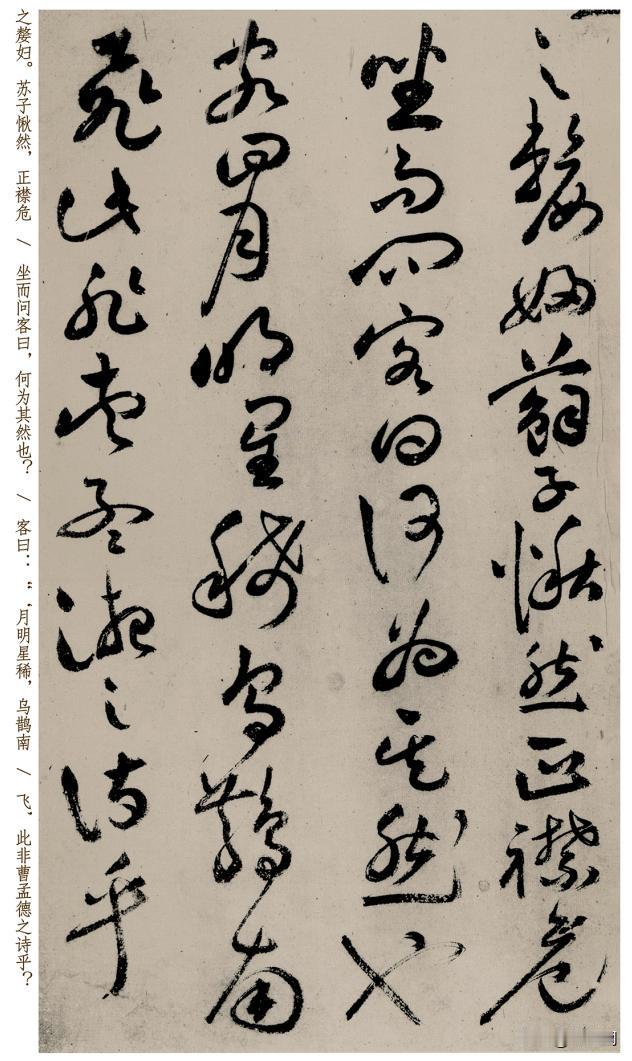 之嫠婦蘇子愀然正襟危
坐而問客曰何為其然也
客曰月明星稀烏鵲南
飛此非曹孟德之詩乎
之嫠妇。苏子愀然，正襟危 / 坐而问客曰，何为其然也？ / 客曰：“，月明星稀，乌鹊南 / 飞，此非曹孟德之诗乎？